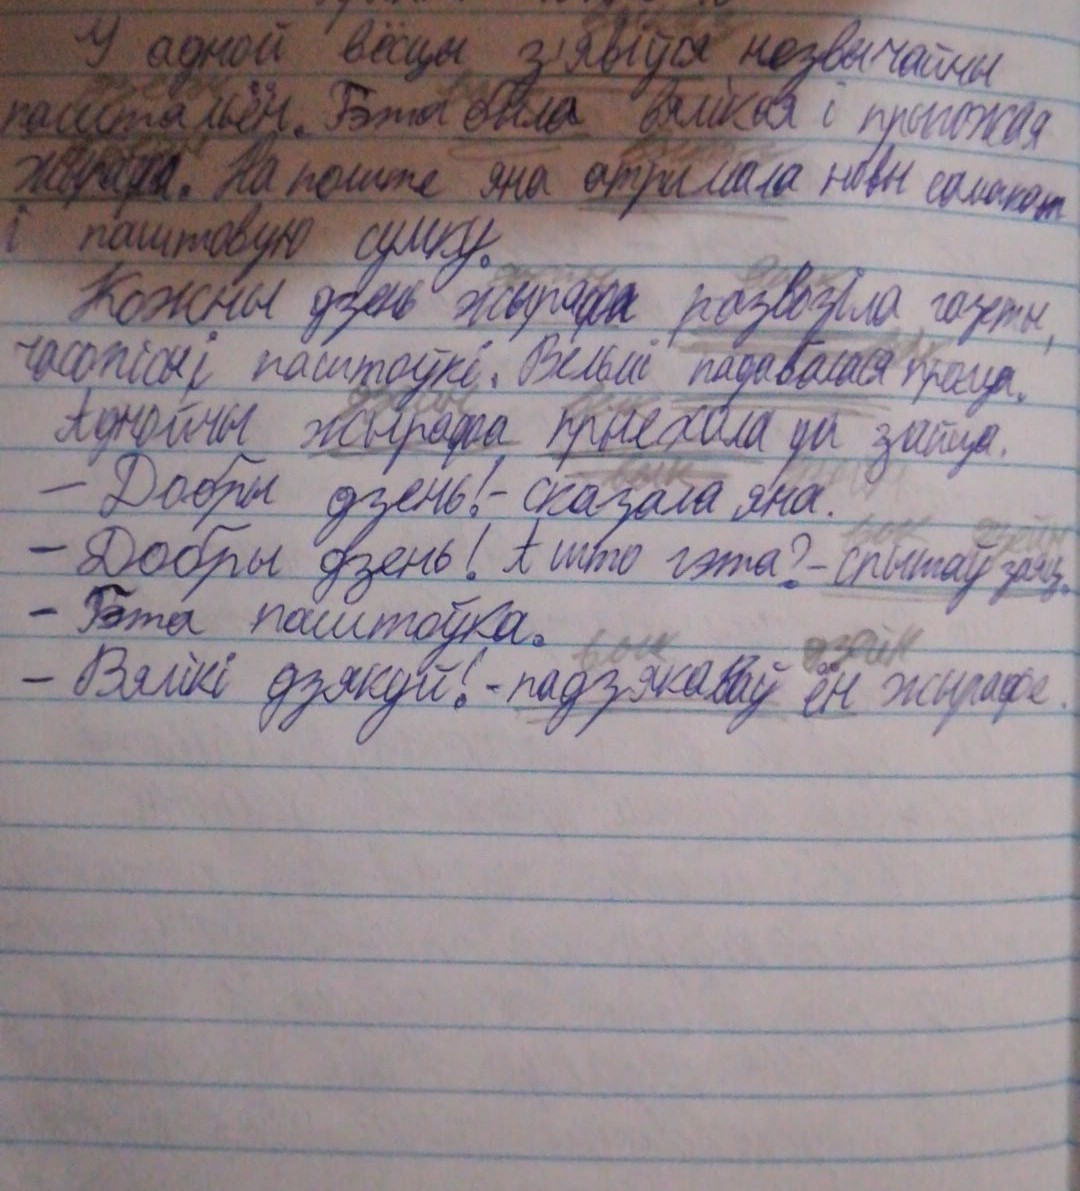 У адной вёсцы з'явіўся незвычайны
паштальён. Гэта была вялікая і прыгожая
жырафа. На пошце яна атрымала новы самакат
і паштовую сумку.
Кожны дзень жырафа развозіла газеты,
часопісы і паштоўкі. Вельмі падабалася праца.
Аднойчы жырафа прыехала да зайца.
– Добры дзень! - сказала яна.
– Добры дзень! А што гэта? - спытаў заяц.
– Гэта паштоўка.
вык дзейн
– Вялікі дзякуй! - падзякаваў ён жырафе.